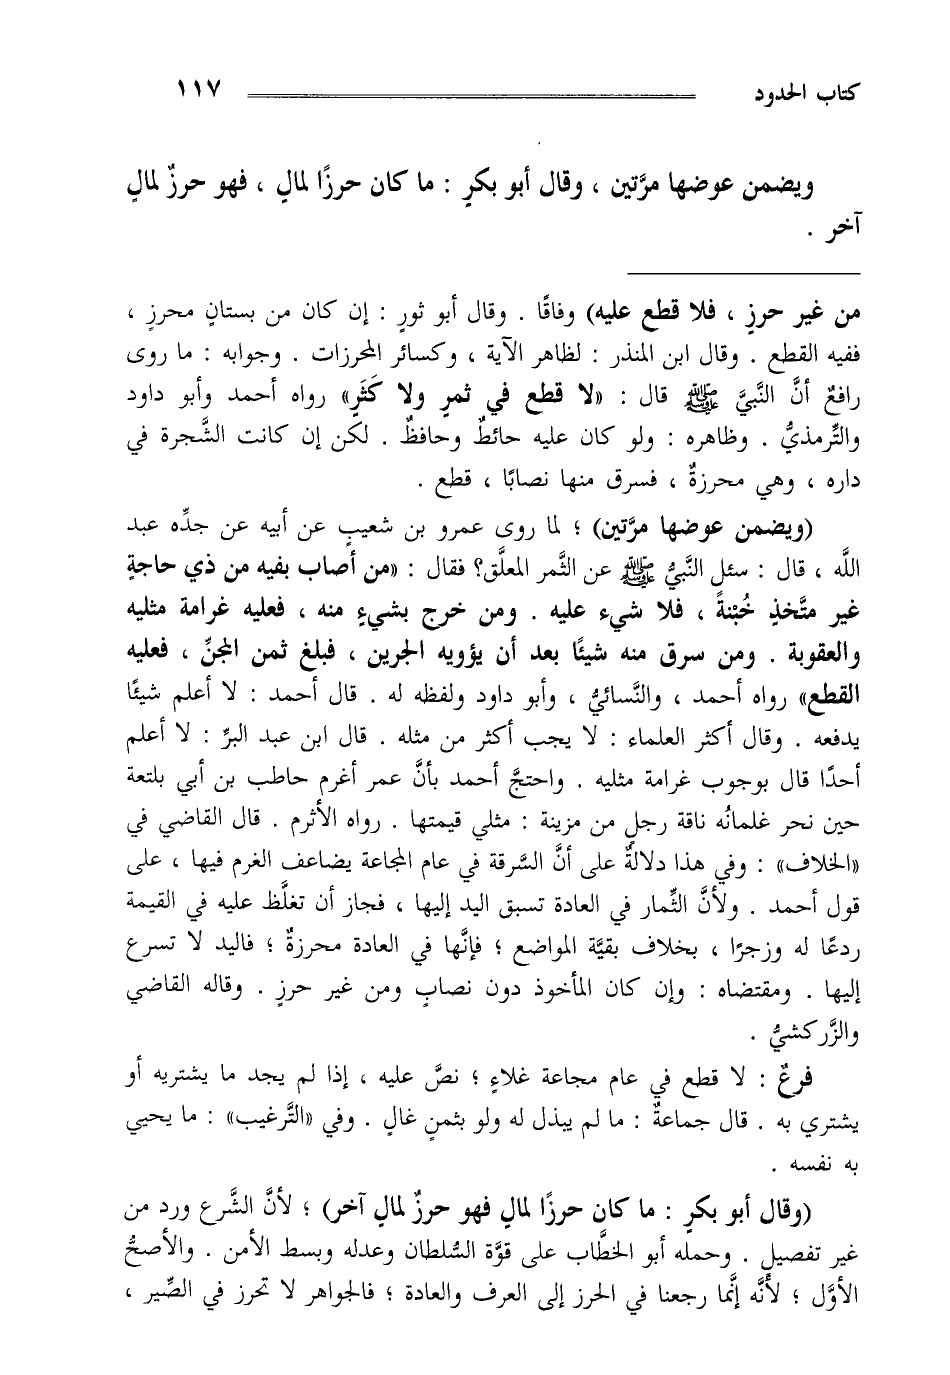 كتاب الحدود ١١٧
ويضمن عوضها مرَّتين ، وقال أبو بكرٍ : ما كان حرزًا لمالٍ ، فهو حرزٌ لمالٍ
آخر .
من غير حرزٍ ، فلا قطع عليه) وفاقًا . وقال أبو ثورٍ : إن كان من بستانٍ محرزٍ ،
ففيه القطع . وقال ابن المنذر : لظاهر الآية ، وكسائر المحرزات . وجوابه : ما روى
رافعٌ أنَّ النَّبيَّ ﷺ قال : «لا قطع في ثمرٍ ولا كَثَرٍ» رواه أحمد وأبو داود
والتِّرمذيُّ . وظاهره : ولو كان عليه حائطٌ وحافظٌ . لكن إن كانت الشَّجرة في
داره ، وهي محرزةٌ ، فسرق منها نصابًا ، قطع .
(ويضمن عوضها مرَّتين) ؛ لما روى عمرو بن شعيبٍ عن أبيه عن جدِّه عبد
اللَّه ، قال : سئل النَّبيُّ ﷺ عن الثَّمر المعلَّق؟ فقال : «من أصاب بفيه من ذي حاجةٍ
غير متَّخذٍ خُبْنةً ، فلا شيء عليه . ومن خرج بشيءٍ منه ، فعليه غرامة مثليه
والعقوبة . ومن سرق منه شيئًا بعد أن يؤويه الجرين ، فبلغ ثمن المجنِّ ، فعليه
القطع» رواه أحمد ، والنَّسائيُّ ، وأبو داود ولفظه له . قال أحمد : لا أعلم شيئًا
يدفعه . وقال أكثر العلماء : لا يجب أكثر من مثله . قال ابن عبد البرِّ : لا أعلم
أحدًا قال بوجوب غرامة مثليه . واحتجَّ أحمد بأنَّ عمر أغرم حاطب بن أبي بلتعة
حين نحر غلمانُه ناقة رجلٍ من مزينة : مثلي قيمتها . رواه الأثرم . قال القاضي في
«الخلاف» : وفي هذا دلالةٌ على أنَّ السَّرقة في عام المجاعة يضاعف الغرم فيها ، على
قول أحمد . ولأنَّ الثِّمار في العادة تسبق اليد إليها ، فجاز أن تغلَّظ عليه في القيمة
ردعًا له وزجرًا ، بخلاف بقيَّة المواضع ؛ فإنَّها في العادة محرزةٌ ؛ فاليد لا تسرع
إليها . ومقتضاه : وإن كان المأخوذ دون نصابٍ ومن غير حرزٍ . وقاله القاضي
والزَّركشيُّ .
فرعٌ : لا قطع في عام مجاعة غلاءٍ ؛ نصَّ عليه ، إذا لم يجد ما يشتريه أو
يشتري به . قال جماعةٌ : ما لم يبذل له ولو بثمنٍ غالٍ . وفي «التَّرغيب» : ما يحيي
به نفسه .
(وقال أبو بكرٍ : ما كان حرزًا لمالٍ فهو حرزٌ لمالٍ آخر) ؛ لأنَّ الشَّرع ورد من
غير تفصيلٍ . وحمله أبو الخطَّاب على قوَّة السُّلطان وعدله وبسط الأمن . والأصحُّ
الأوَّل ؛ لأنَّه إنَّما رجعنا في الحرز إلى العرف والعادة ؛ فالجواهر لا تحرز في الصِّير ،